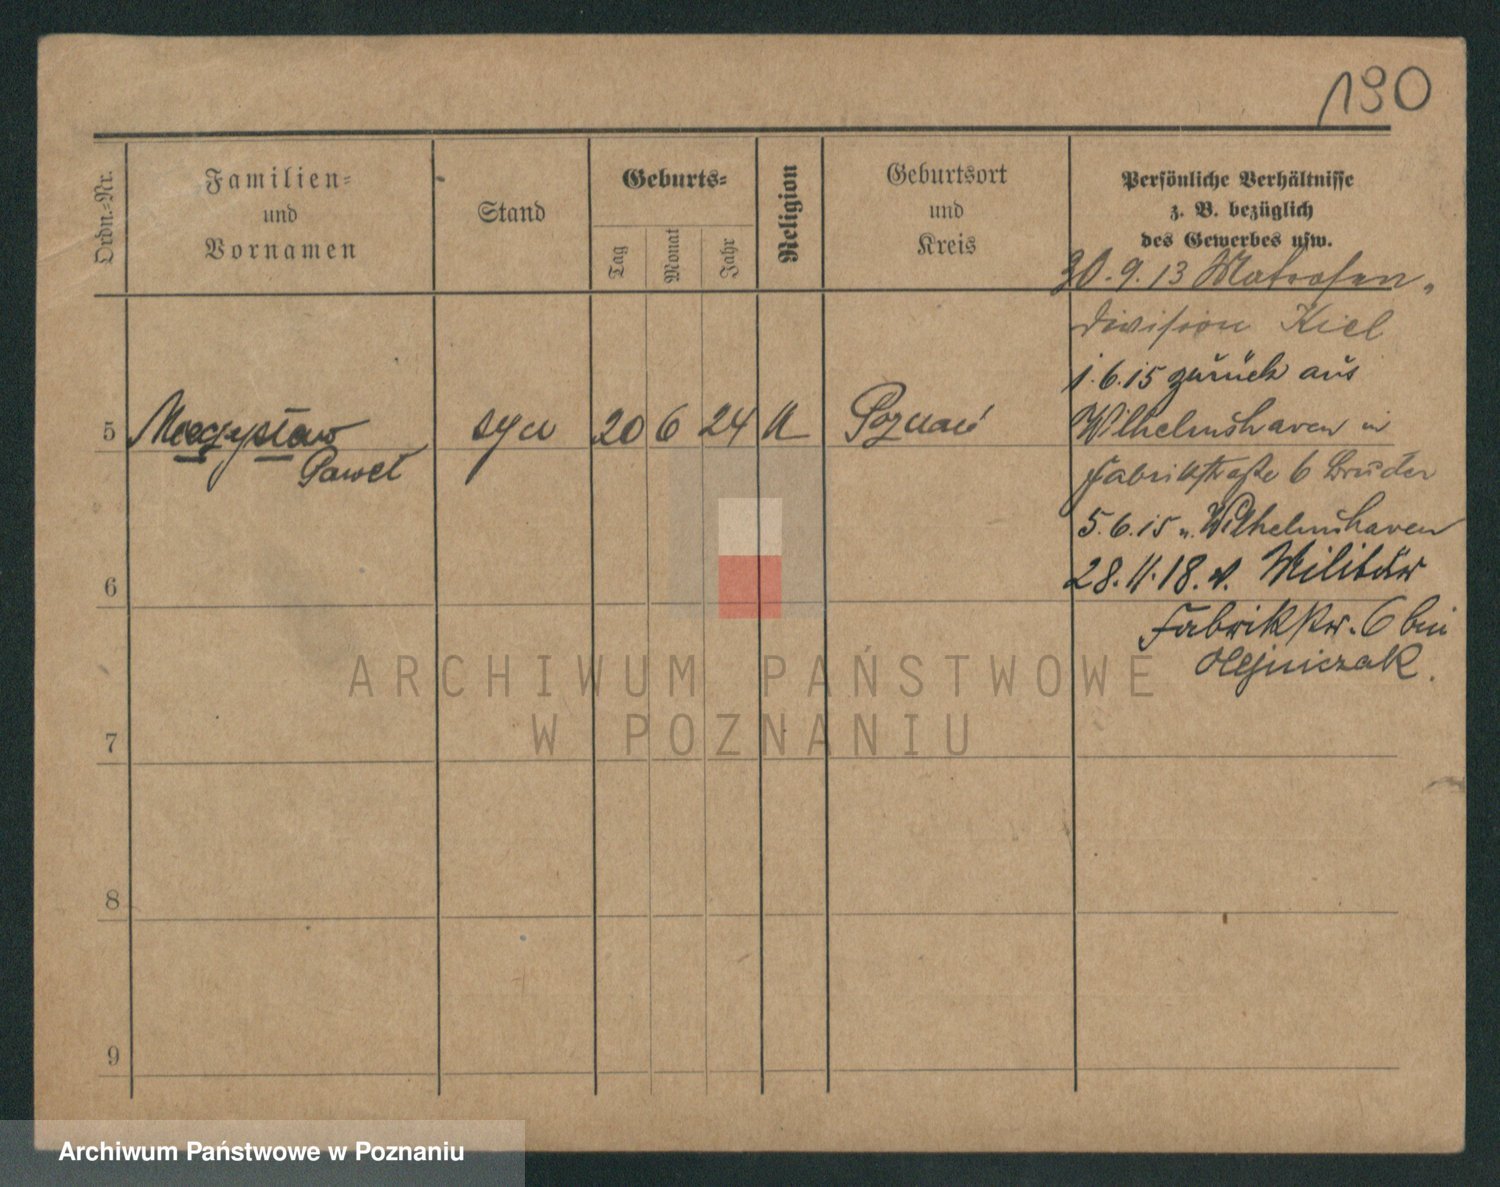 190
Ordn.-Nr.
Familien-
und
Vornamen
Stand
Geburts-
Tag
Monat
Jahr
Religion
Geburtsort
und
Kreis
Persönliche Verhältnisse
z. B. bezüglich
des Gewerbes usw.
30.9.13 Matrosen-
division Kiel
1.6.15 zurück aus
5 Mieczysław syn 20 6 24 K Poznań
Paweł
Wilhelmshaven in
Fabrikstraße 6 Bruder
5.6.15 n. Wilhelmshaven
6
28.11.18. v. Militär
Fabrikstr. 6 bei
Olejniczak.
7
8
9
ARCHIWUM PAŃSTWOWE
W POZNANIU
Archiwum Państwowe w Poznaniu